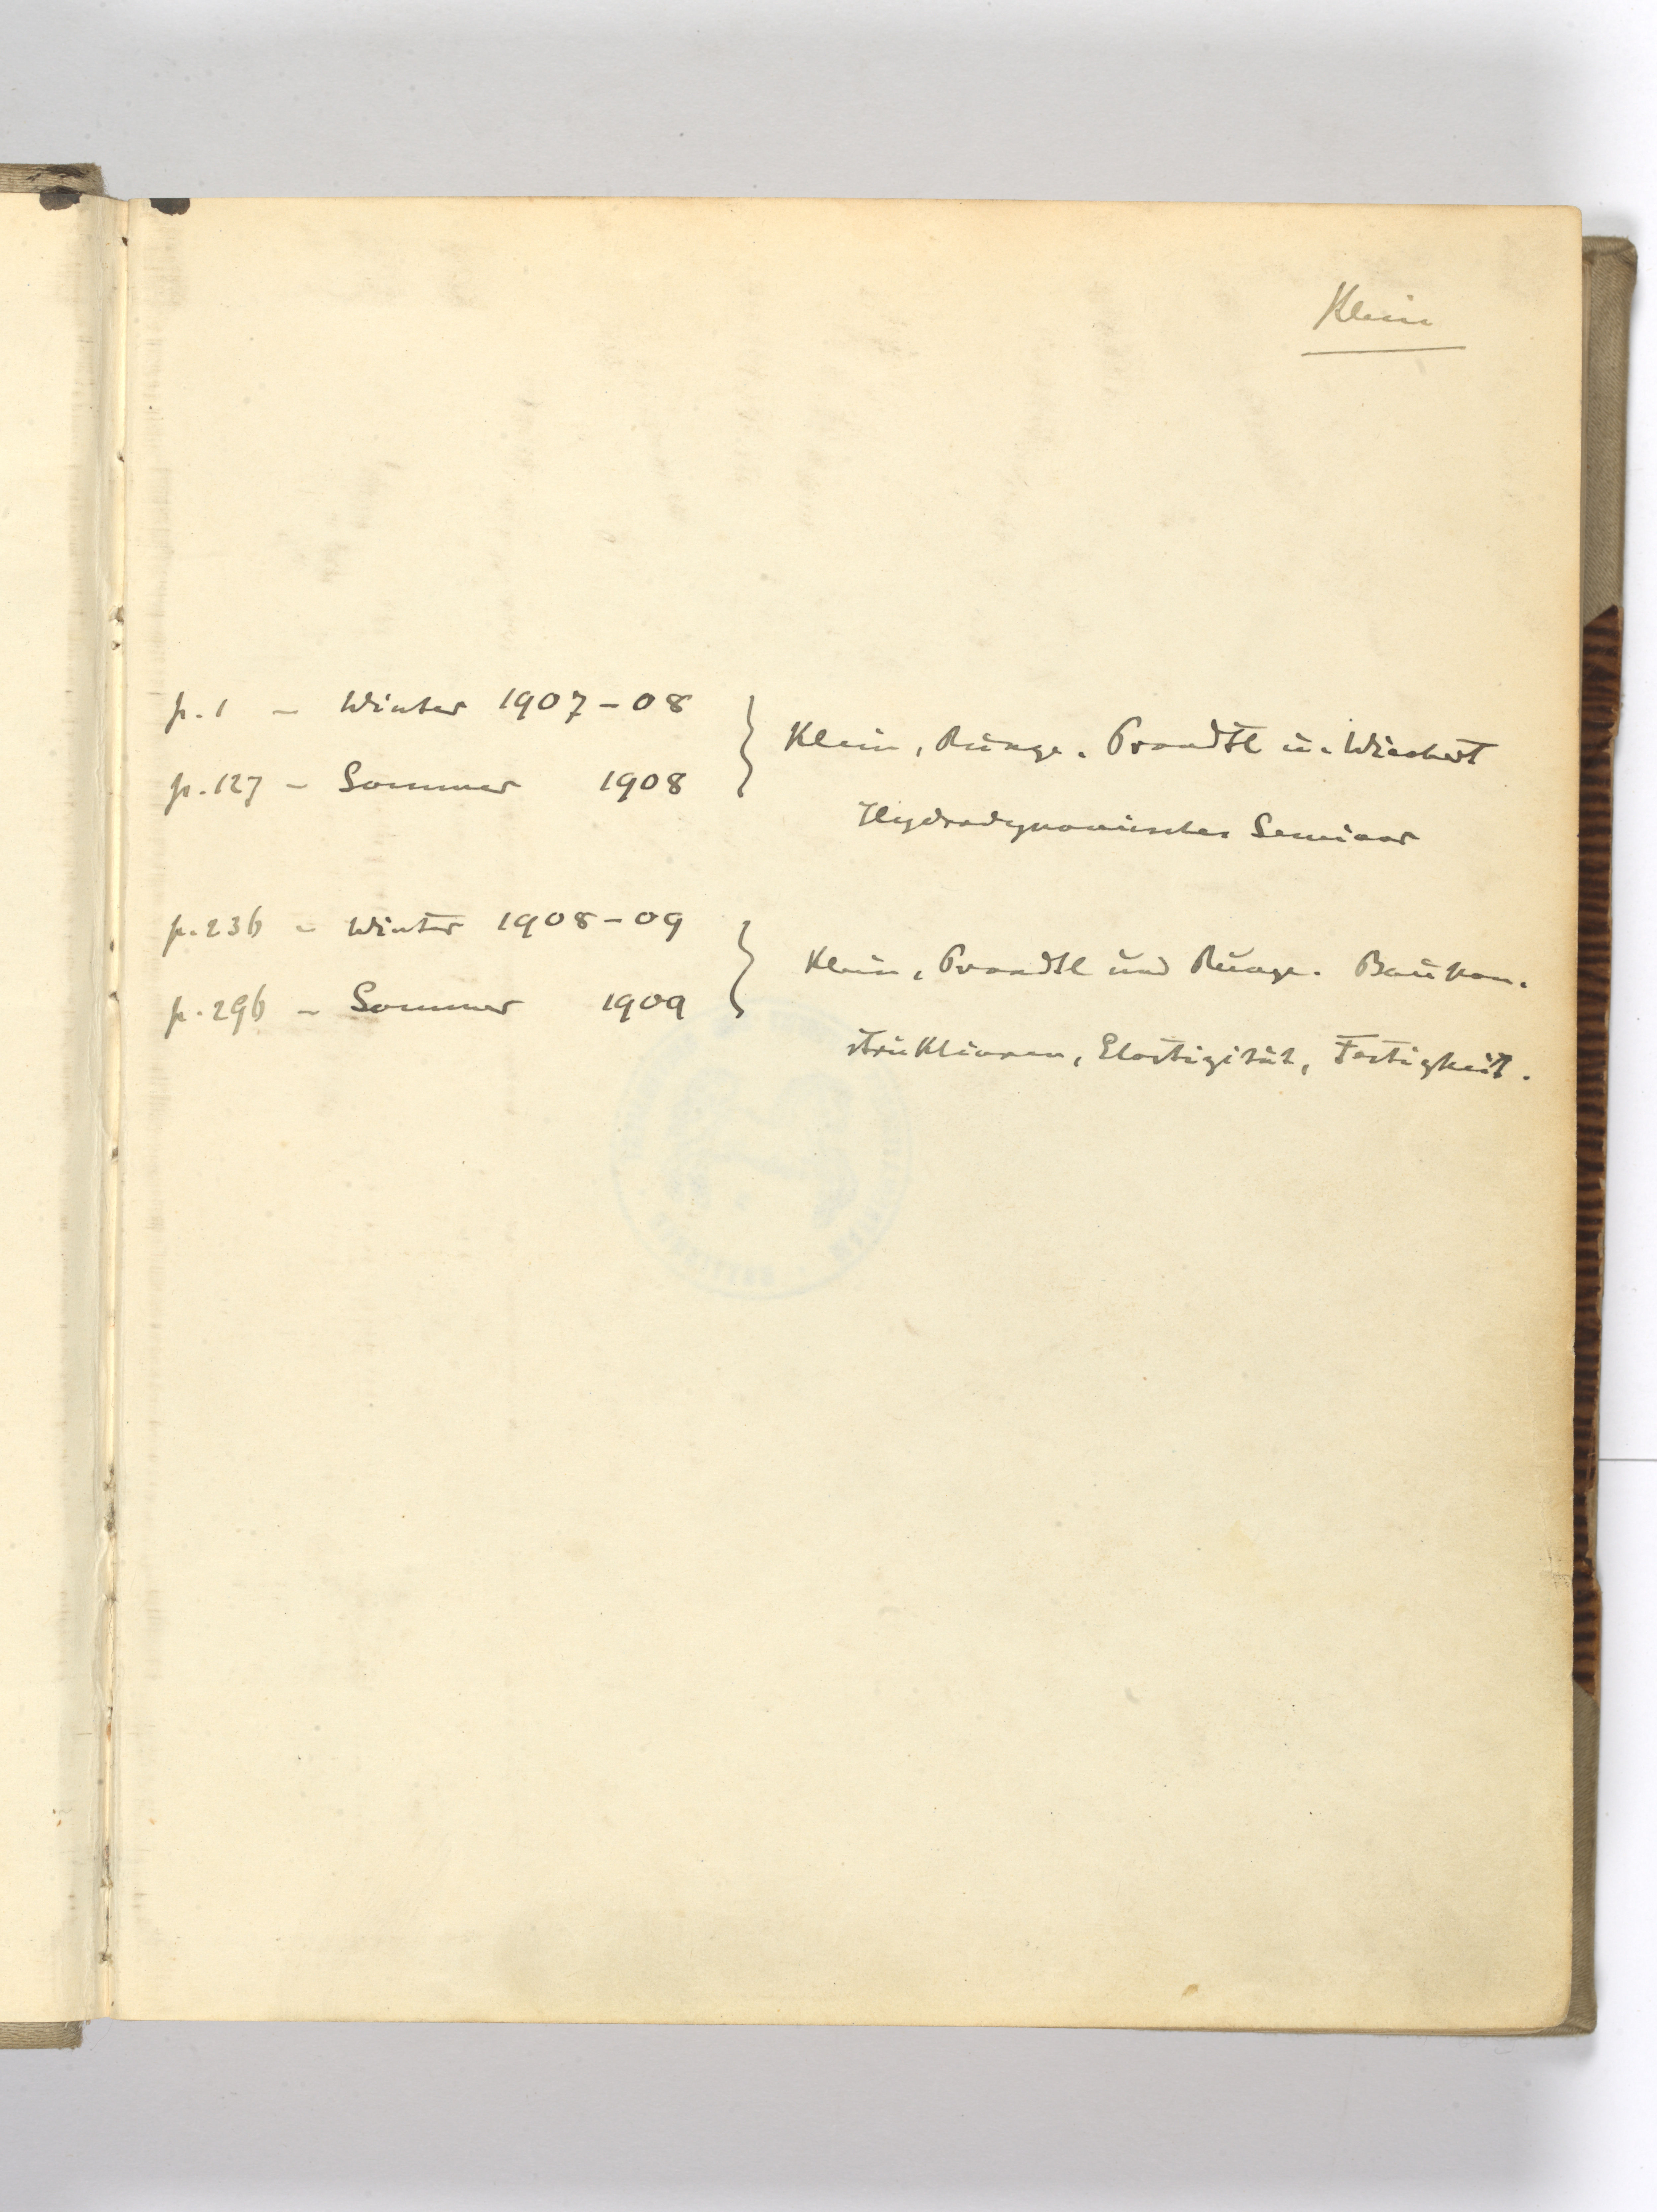 Klein
p. 1 – Winter 1907–08
p. 127 – Sommer 1908
Klein, Runge, Prandtl u. Wiechert
Hydrodynamisches Seminar
p. 236 – Winter 1908–09
p. 296 – Sommer 1909
Klein, Prandtl und Runge. Baukon-
struktionen, Elastizität, Festigkeit.